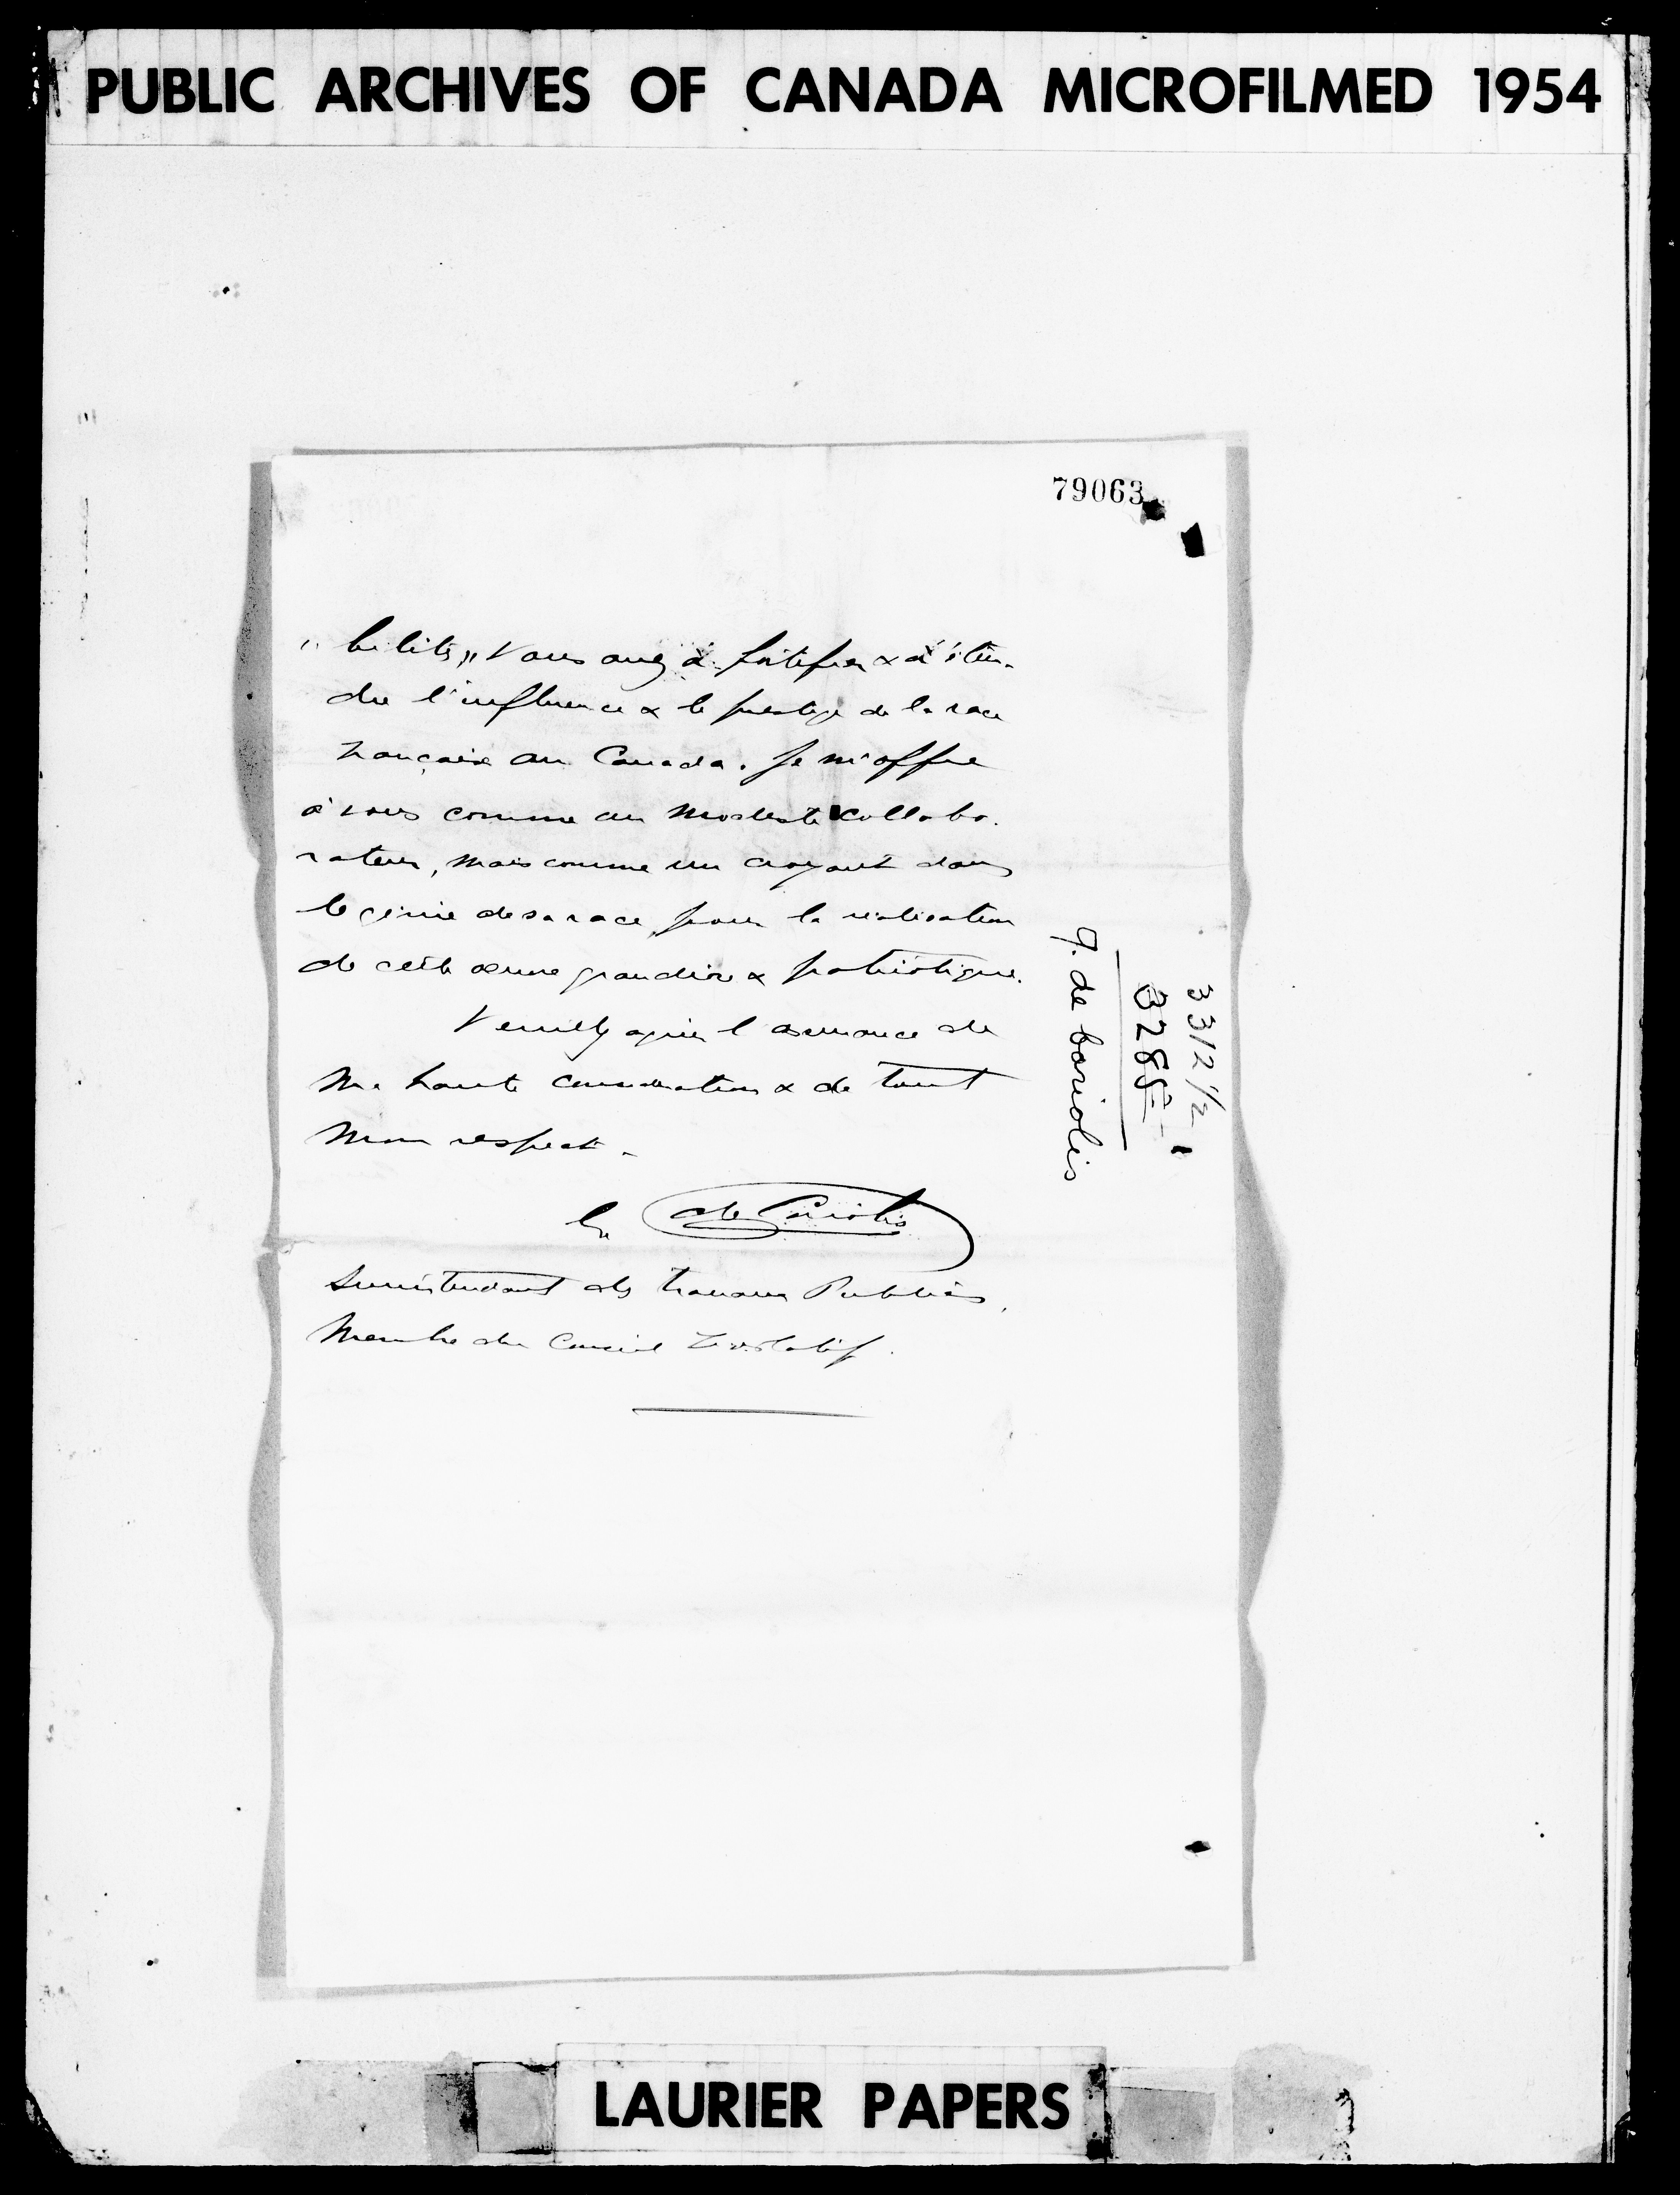 PUBLIC ARCHIVES OF CANADA MICROFILMED 1954
79063
" bilités,, Vous avez à fortifier & à éten-
dre l'influence & le prestige de la race
française au Canada. Je m'offre
à vous comme un modeste collabo-
rateur, mais comme un croyant dans
le génie de sa race, pour la réalisation
de cette œuvre grandiose & patriotique.
Veuillez agréer l'assurance de
ma haute considération & de tout
mon respect.
de Coriolis
Surintendant des travaux Publics,
Membre du Conseil Législatif.
G. de Coriolis
3285
3312 1/2
LAURIER PAPERS